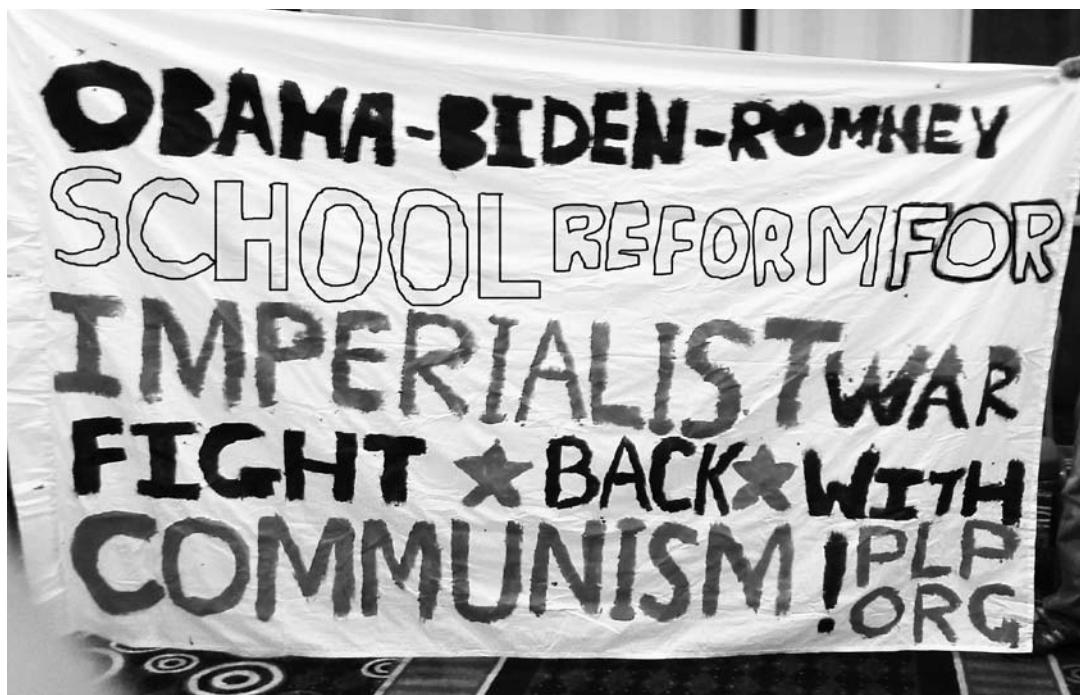 OBAMA-BIDEN-ROMNEY
SCHOOL REFORM FOR
IMPERIALIST WAR
FIGHT ★ BACK ★ WITH
COMMUNISM! PLP
ORG